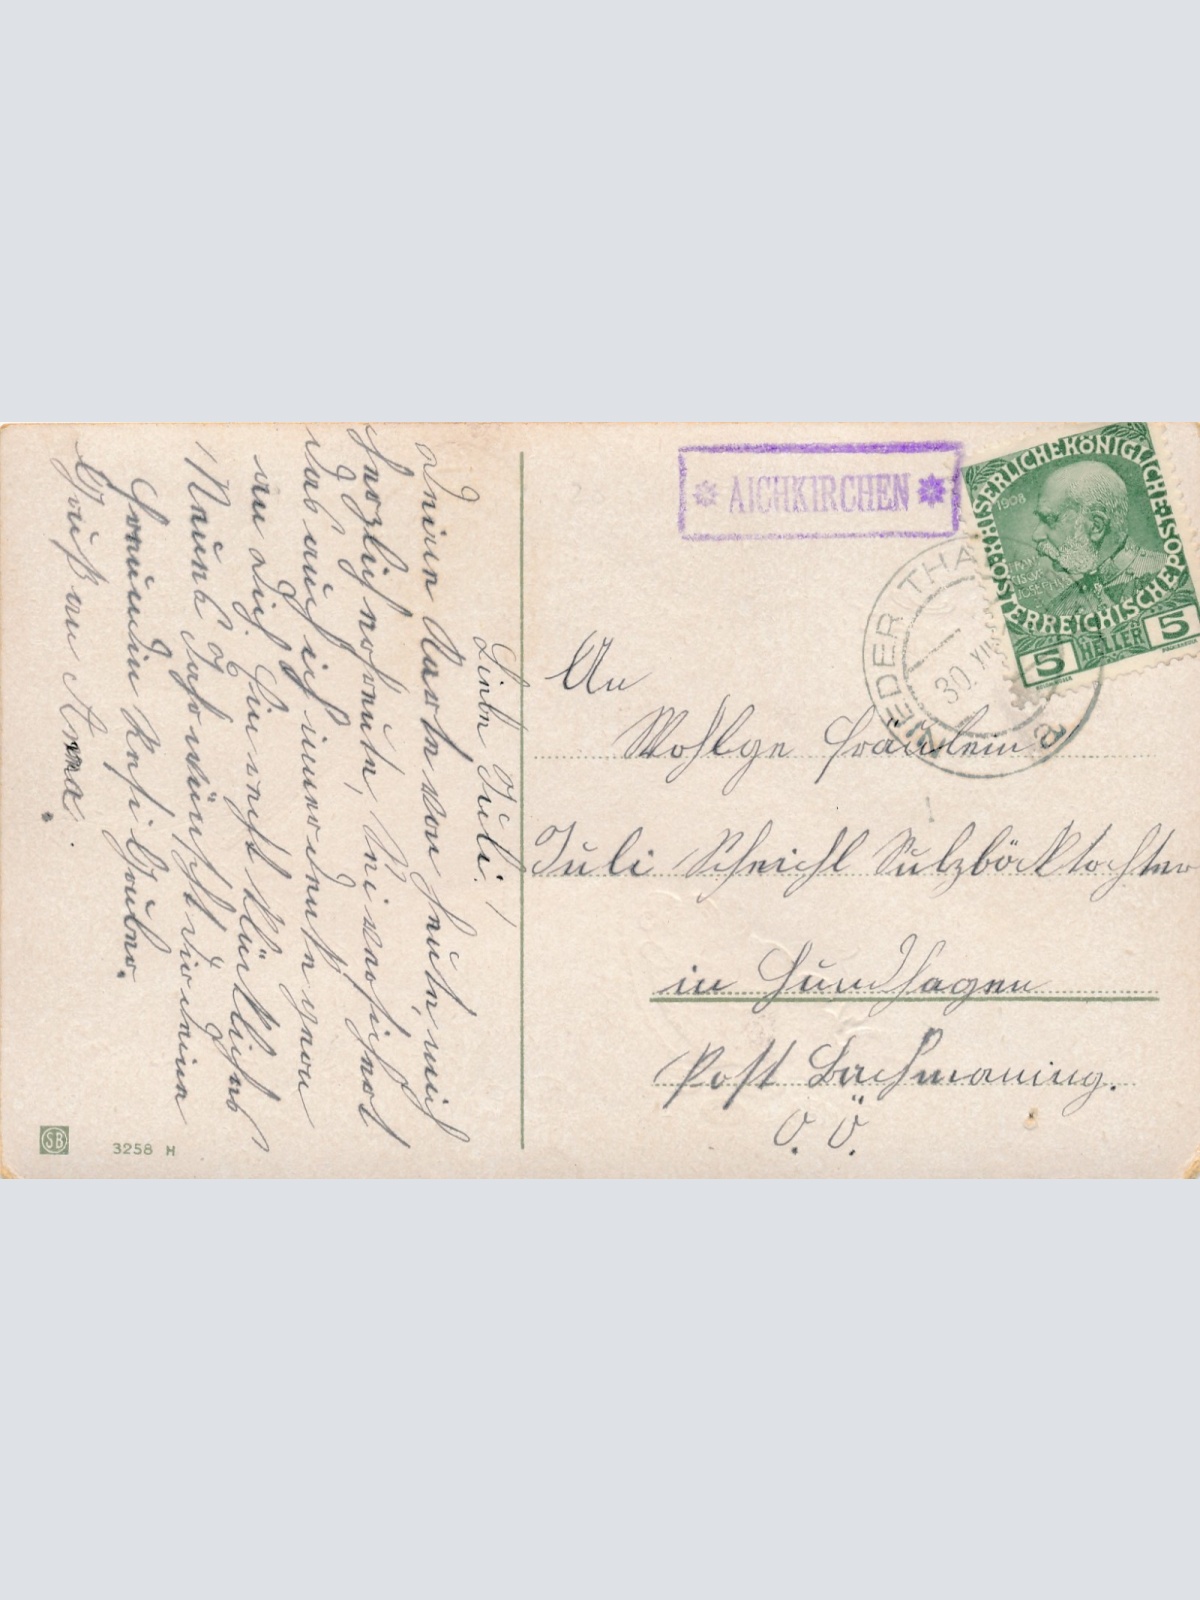 Liebe Juli!
Deine Karte von heute, mich
herzlich erfreute, sei versichert
das auch ich immer denke gern
an dich. Ein recht glückliches
Neues Jahr wünscht dir deine
Freundin Resi Gruber.
Gruß an Anna.
SB
3258 H
AICHKIRCHEN
KAISERLICHEKÖNIGLICHE
ÖSTERREICHISCHE POST
1908
5 HELLER 5
NEDER THA
30. XII
a
An
Wohlge Fräulein
Juli Scheichl Sulzböcktochter
in Hundhagen
Post Bachmaning.
O. Ö.